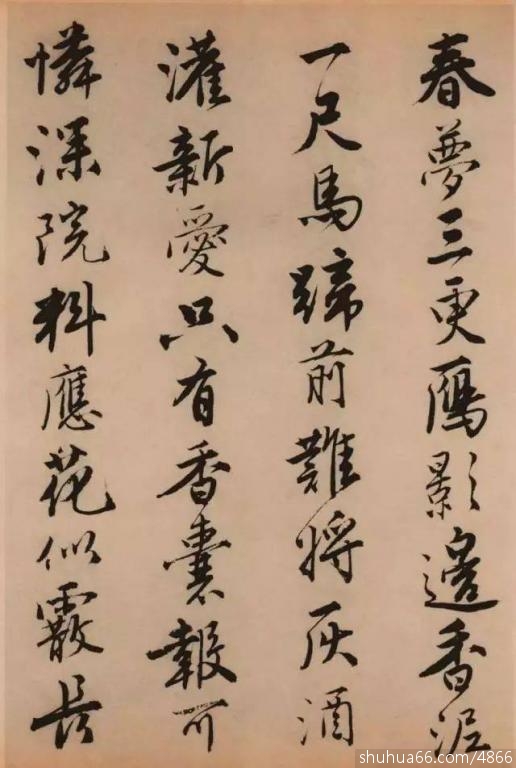 春夢三更雁影邊香泥
一尺馬蹄前難將灰酒
灌新愛只有香囊報可
憐深院料應花似霰長
shuhua66.com/4866